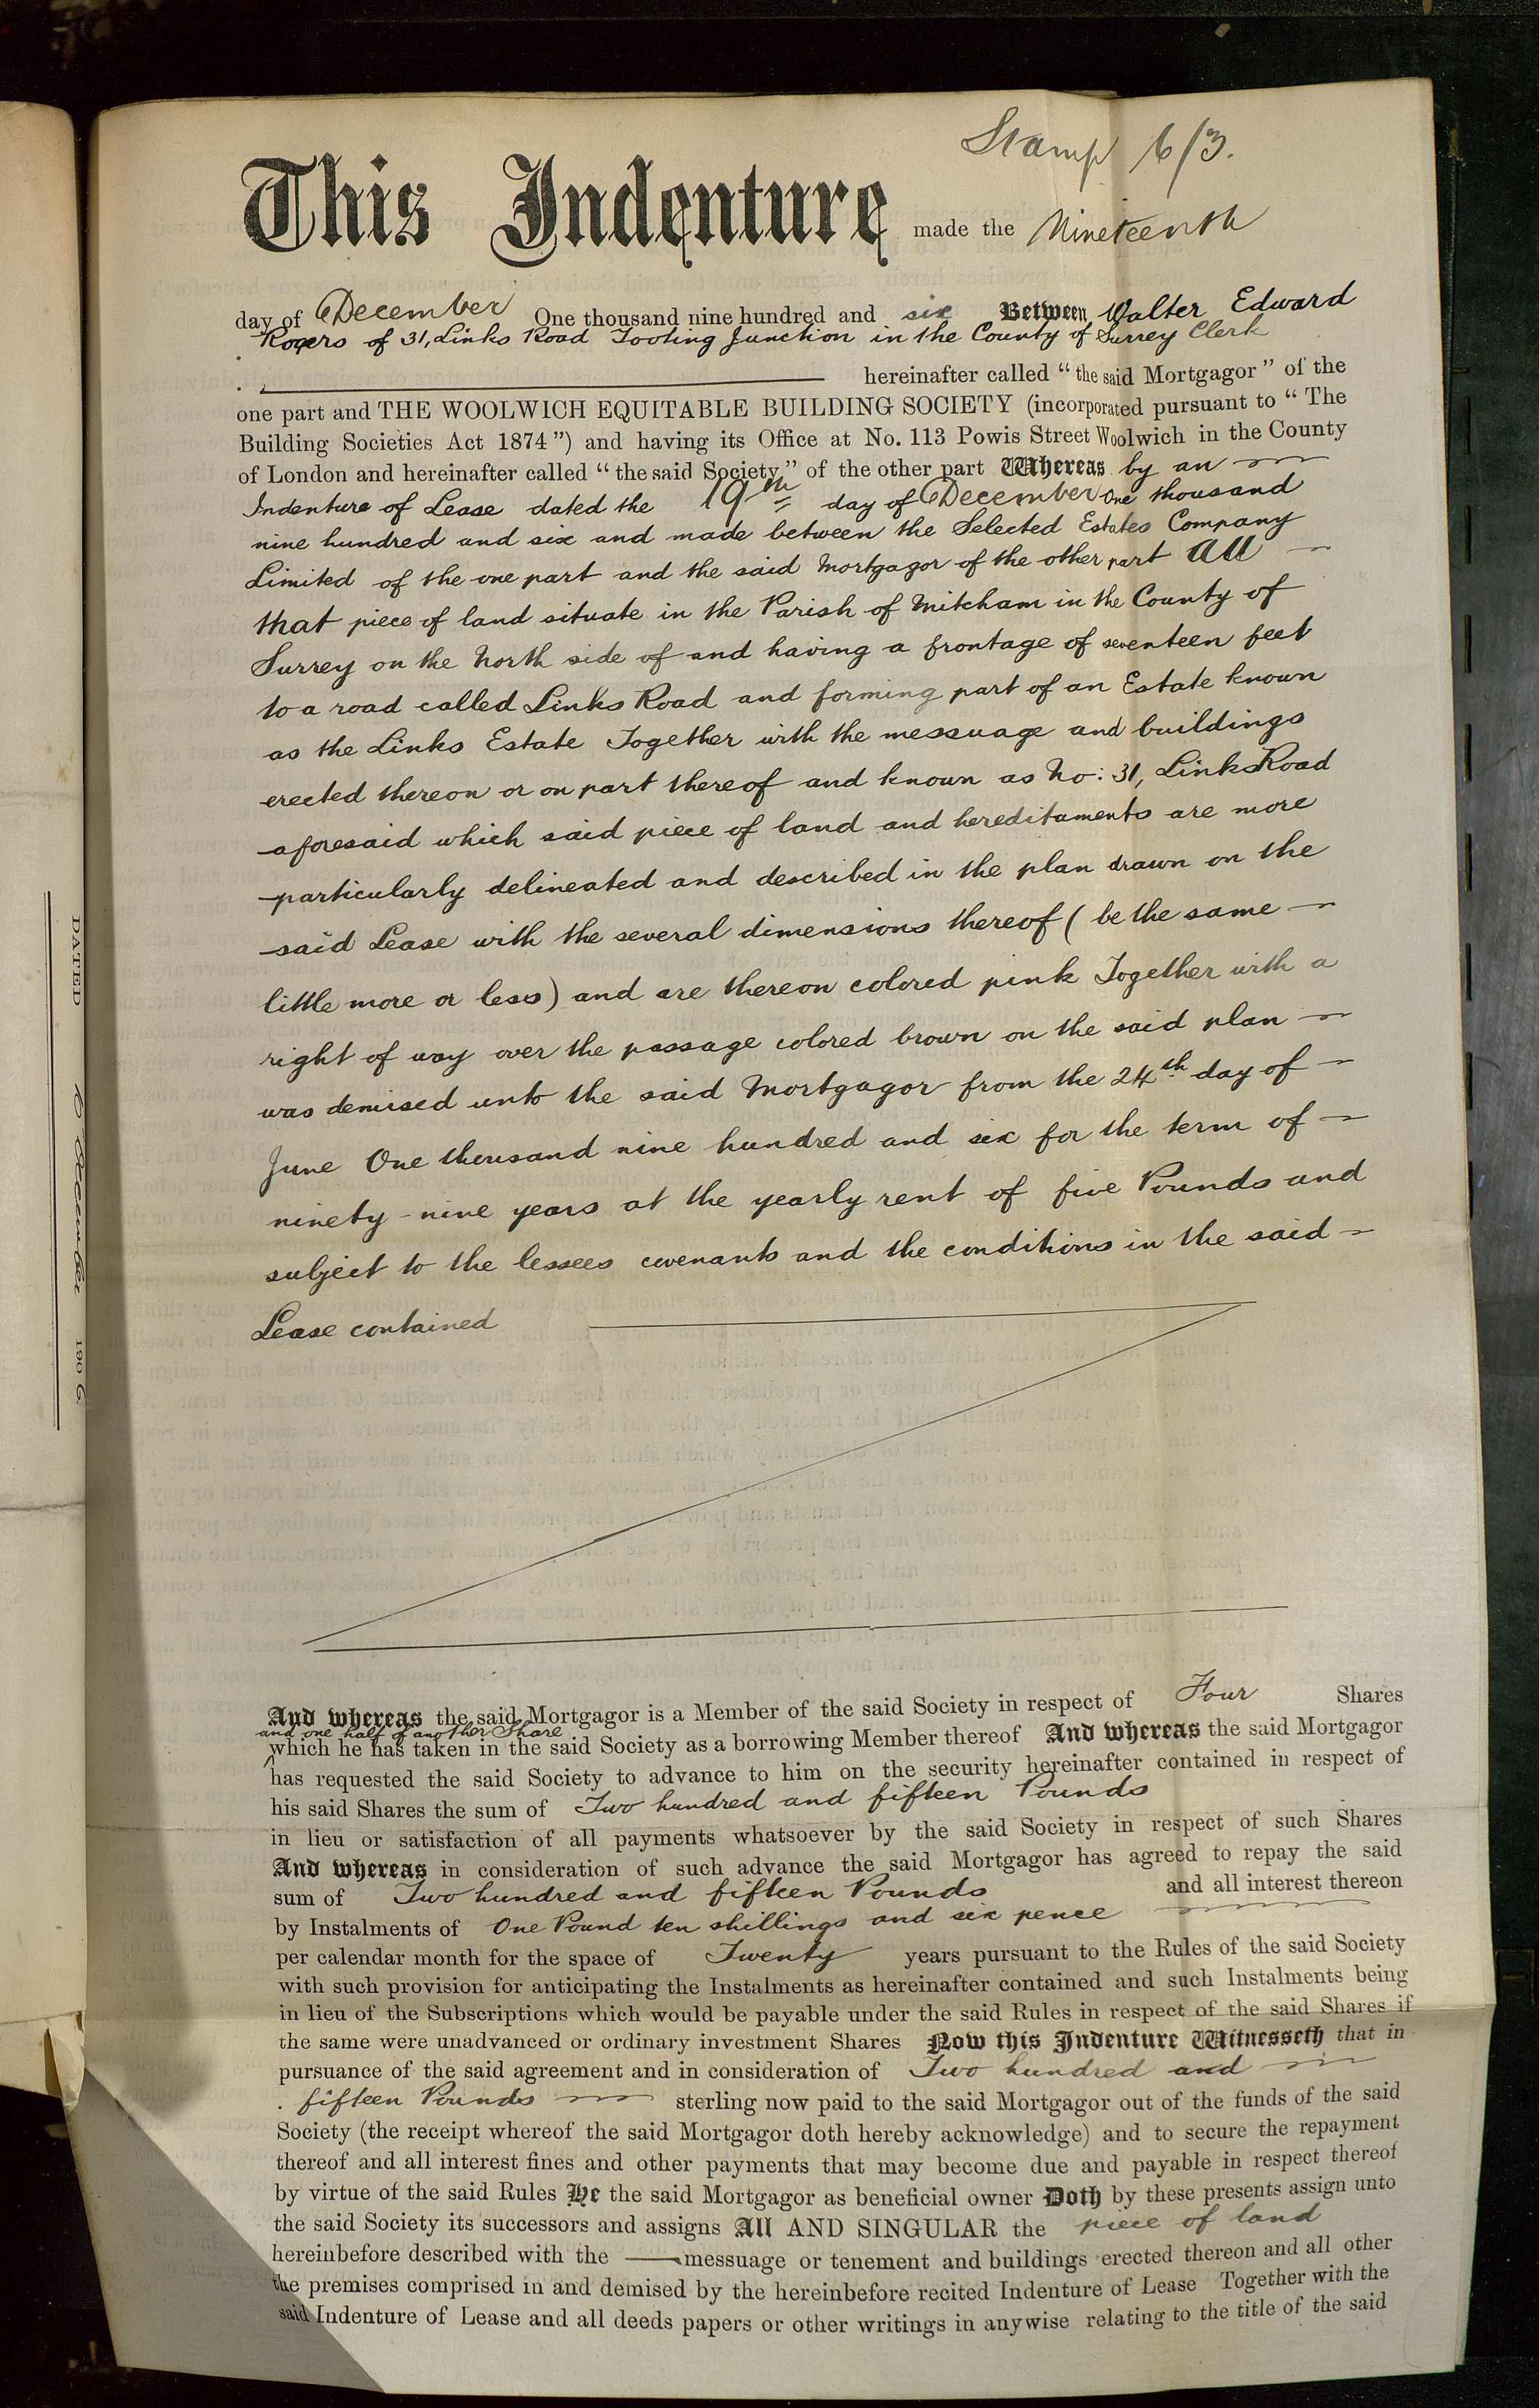 Stamp 6/3.
This Indenture made the Nineteenth
day of December One thousand nine hundred and six Between Walter Edward
Rogers of 31, Links Road Tooting Junction in the County of Surrey Clerk
hereinafter called "the said Mortgagor" of the
one part and THE WOOLWICH EQUITABLE BUILDING SOCIETY (incorporated pursuant to "The
Building Societies Act 1874") and having its Office at No. 113 Powis Street Woolwich in the County
of London and hereinafter called "the said Society" of the other part Whereas by an
Indenture of Lease dated the 19th day of December One thousand
nine hundred and six and made between the Selected Estates Company
Limited of the one part and the said Mortgagor of the other part All
that piece of land situate in the Parish of Mitcham in the County of
Surrey on the North side of and having a frontage of seventeen feet
to a road called Links Road and forming part of an Estate known
as the Links Estate Together with the messuage and buildings
erected thereon or on part thereof and known as No: 31, Links Road
aforesaid which said piece of land and hereditaments are more
particularly delineated and described in the plan drawn on the
said Lease with the several dimensions thereof (be the same
little more or less) and are thereon colored pink Together with a
right of way over the passage colored brown on the said plan
was demised unto the said Mortgagor from the 24th day of
June One thousand nine hundred and six for the term of
ninety-nine years at the yearly rent of five Pounds and
subject to the lessees covenants and the conditions in the said
Lease contained
And whereas the said Mortgagor is a Member of the said Society in respect of Four Shares
and one half of another Share
which he has taken in the said Society as a borrowing Member thereof And whereas the said Mortgagor
has requested the said Society to advance to him on the security hereinafter contained in respect of
his said Shares the sum of Two hundred and fifteen Pounds
in lieu or satisfaction of all payments whatsoever by the said Society in respect of such Shares
And whereas in consideration of such advance the said Mortgagor has agreed to repay the said
sum of Two hundred and fifteen Pounds and all interest thereon
by Instalments of One Pound ten shillings and six pence
per calendar month for the space of Twenty years pursuant to the Rules of the said Society
with such provision for anticipating the Instalments as hereinafter contained and such Instalments being
in lieu of the Subscriptions which would be payable under the said Rules in respect of the said Shares if
the same were unadvanced or ordinary investment Shares Now this Indenture Witnesseth that in
pursuance of the said agreement and in consideration of Two hundred and
fifteen Pounds sterling now paid to the said Mortgagor out of the funds of the said
Society (the receipt whereof the said Mortgagor doth hereby acknowledge) and to secure the repayment
thereof and all interest fines and other payments that may become due and payable in respect thereof
by virtue of the said Rules He the said Mortgagor as beneficial owner Doth by these presents assign unto
the said Society its successors and assigns All AND SINGULAR the piece of land
hereinbefore described with the messuage or tenement and buildings erected thereon and all other
the premises comprised in and demised by the hereinbefore recited Indenture of Lease Together with the
said Indenture of Lease and all deeds papers or other writings in anywise relating to the title of the said
DATED December 1906